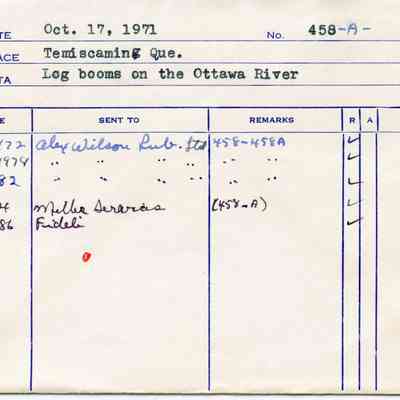 TE Oct. 17, 1971 No. 458-A-
ACE Temiscaming Que.
TA Log booms on the Ottawa River
E SENT TO REMARKS R A
172 Alex Wilson Pub. Ltd 458-458A ✓
1979 " " " " " " ✓
82 " " " " " " ✓
4 Miller Services (458-A) ✓
86 Fideli ✓